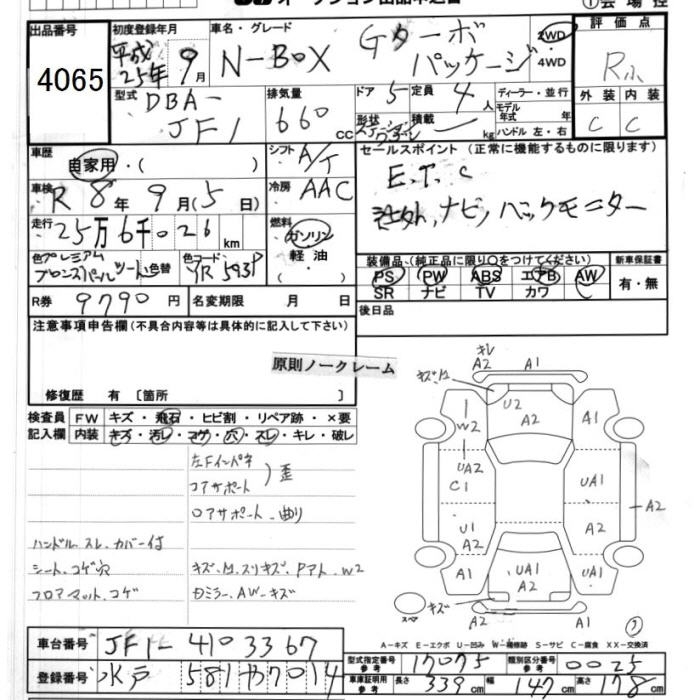 オークション出品申込書
①会場控
出品番号 初度登録年月 車名・グレード 評価点
4065 平成25年 9月 N-BOX Gターボパッケージ 2WD・4WD
外装 内装
C C
型式 DBA-JF1 排気量 660cc ドア 5 定員 4人 ディーラー・並行
形状 積載 kg モデル年式 年
ハンドル 左・右
車歴 自家用・( ) シフト A/T セールスポイント (正常に機能するものに限ります)
車検 R8年9月(5日) 冷房 AAC E.T.C
社外,ナビ,バックモニター
走行 25万6千026km 燃料 ガソリン・軽油・
色 プレミアムブロンズパール 色替 色コード YR593P 装備品 (純正品に限り〇をつけてください) 新車保証書
PS PW ABS エアB AW 有・無
SR ナビ TV カワ
R券 9790円 名変期限 月 日 後日品
注意事項申告欄 (不具合内容等は具体的に記入して下さい)
原則ノークレーム
修復歴 有 〔箇所 〕
検査員 FW キズ・飛石・ヒビ割・リペア跡・×要
記入欄 内装 キズ・汚レ・コゲ・穴・スレ・キレ・破レ
左Fインパネ
コアサポート 歪
ロアサポート・曲り
ハンドル.スレ.カバー付
シート.コゲ穴
フロアマット.コゲ
キズ.M.スリキズ.Pアト.W2
ミラー.AW-キズ
キレ
A2 A1
キズ.M
U2
A2
W2 A1
UA2
C1 UA1
A2
U1
A2 A2
A1 UA1
A2 UA1
キズ
スペア
A-キズ E-エクボ U-凹み W-補修跡 S-サビ C-腐食 XX-交換済
車台番号 JF1-4103367
登録番号 水戸 581 7014
型式指定番号 参考 17075 類別区分番号 参考 0025
車庫証明用参考 長さ 339cm 幅 147cm 高さ 178cm